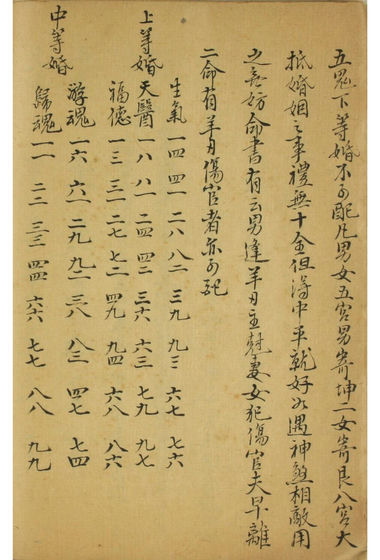 五鬼下等婚不可配凡男女五宮男寄坤二女寄艮八宮大
抵婚姻之事禮無十全但得中平就好遇神煞相敵用
之無妨命書有云男逢羊刃主尅妻女犯傷官夫早離
二命有羊刃傷官者亦可配
生氣 一四 四一 二八 八二 三九 九三 六七 七六
上等婚 天醫 一八 八一 二四 四二 三六 六三 七九 九七
福德 一三 三一 二七 七二 四九 九四 六八 八六
游魂 一六 六一 二九 九二 三八 八三 四七 七四
中等婚 歸魂 一一 二二 三三 四四 六六 七七 八八 九九